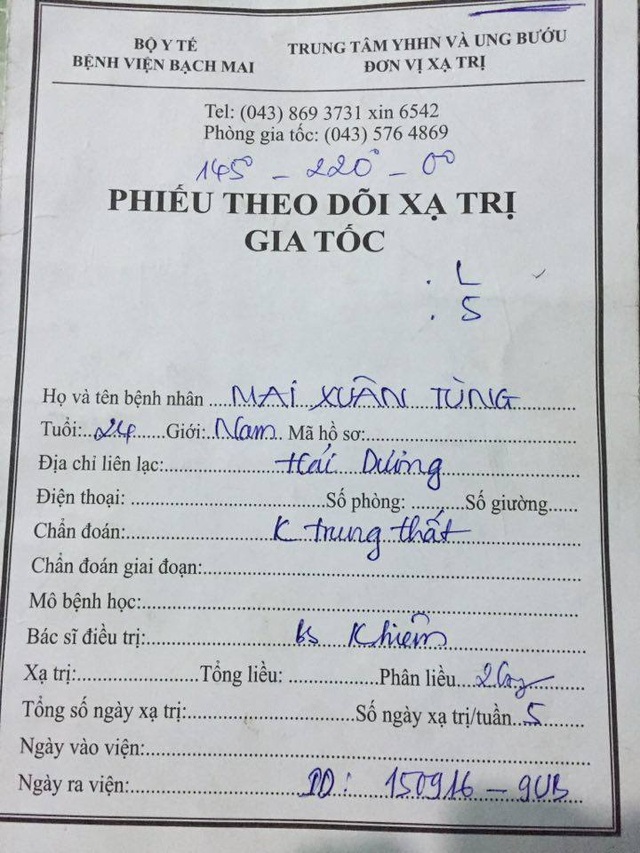 BỘ Y TẾ
BỆNH VIỆN BẠCH MAI
TRUNG TÂM YHHN VÀ UNG BƯỚU
ĐƠN VỊ XẠ TRỊ
Tel: (043) 869 3731 xin 6542
Phòng gia tốc: (043) 576 4869
145° - 220° - 0°
PHIẾU THEO DÕI XẠ TRỊ
GIA TỐC
. L
. S
Họ và tên bệnh nhân ... MAI XUÂN TÙNG
Tuổi: 24 Giới: Nam Mã hồ sơ:
Địa chỉ liên lạc: Hải Dương
Điện thoại: Số phòng: Số giường
Chẩn đoán: K trung thất
Chẩn đoán giai đoạn:
Mô bệnh học:
Bác sĩ điều trị: bs Khiêm
Xạ trị: Tổng liều: Phân liều 2Gy
Tổng số ngày xạ trị: Số ngày xạ trị/tuần 5
Ngày vào viện:
Ngày ra viện: ID: 150916 - 9UB